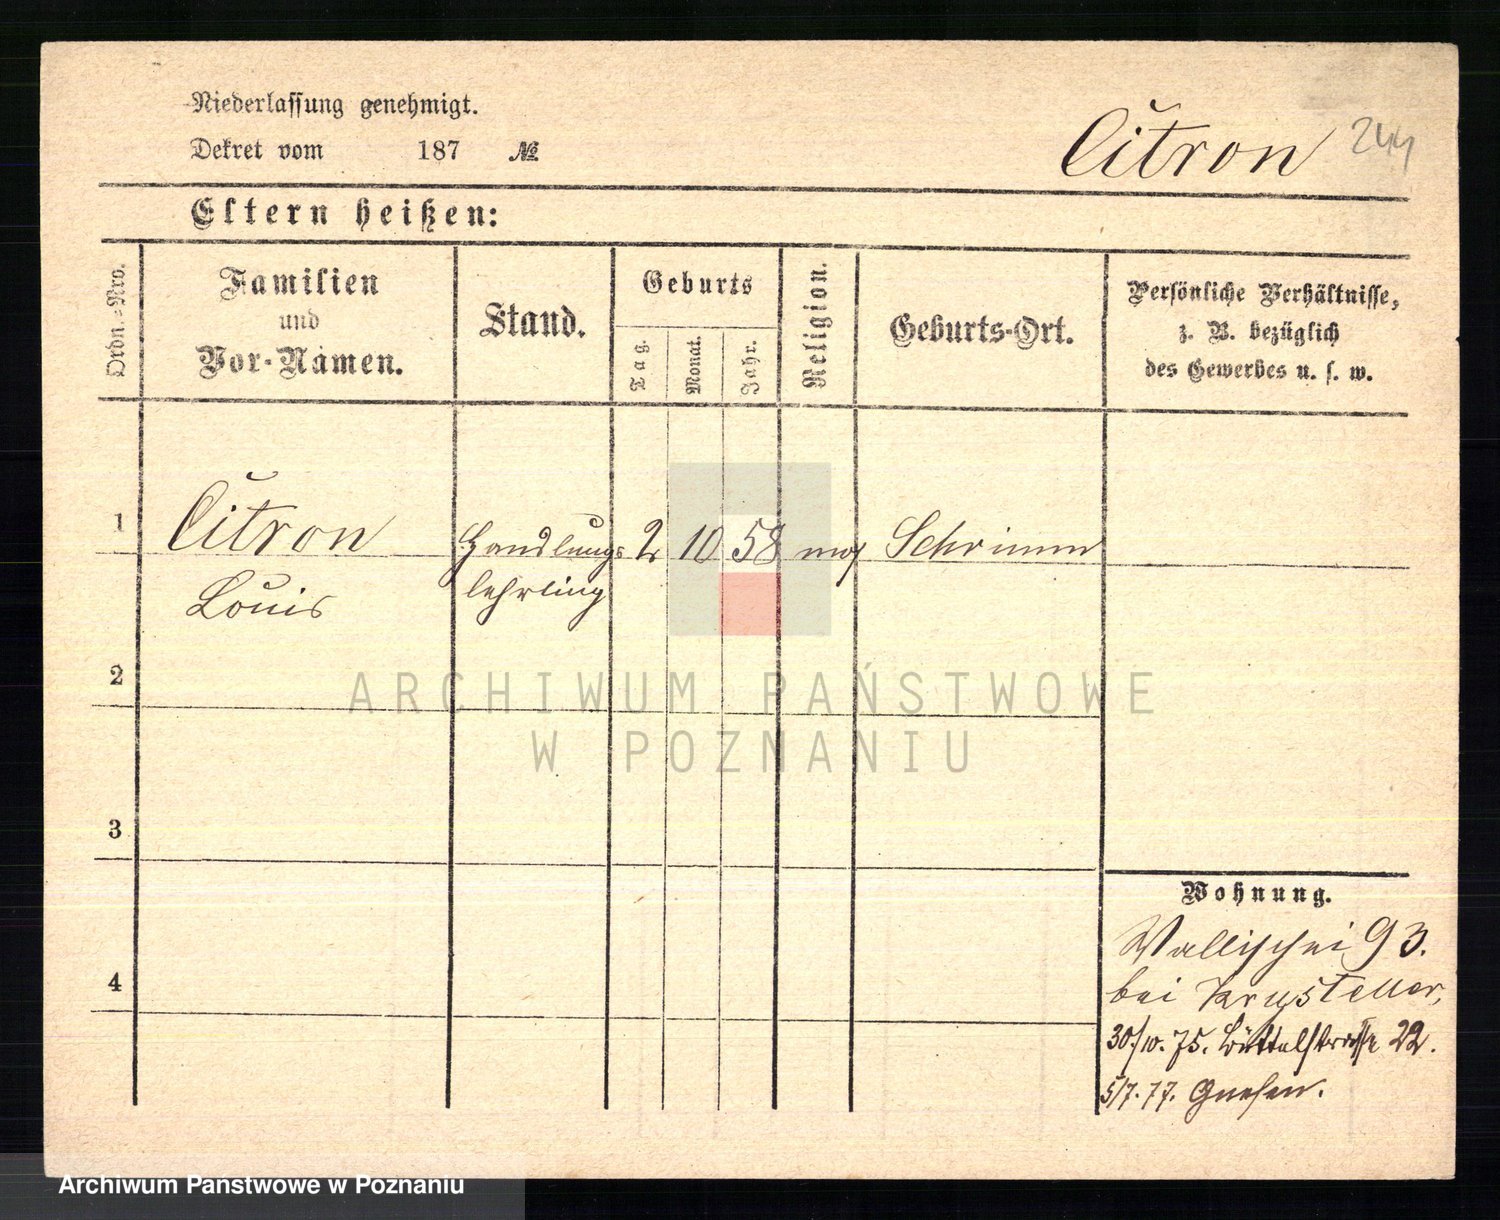 Niederlassung genehmigt.
Dekret vom 187 №
Citron 244
Eltern heißen:
Ordn.=Nro.
Familien
und
Vor-Namen.
Stand.
Geburts
Tag.
Monat.
Jahr.
Religion.
Geburts-Ort.
Persönliche Verhältnisse,
z. B. bezüglich
des Gewerbes u. s. w.
1 Citron Handlungs 2 10 58 mos Schrimm
Louis lehrling
2
3
4
Wohnung.
Wallischei 93.
bei Krysteller,
30/10. 75. Büttelstrasse 22.
5/7. 77. Gnesen.
ARCHIWUM PAŃSTWOWE
W POZNANIU
Archiwum Państwowe w Poznaniu